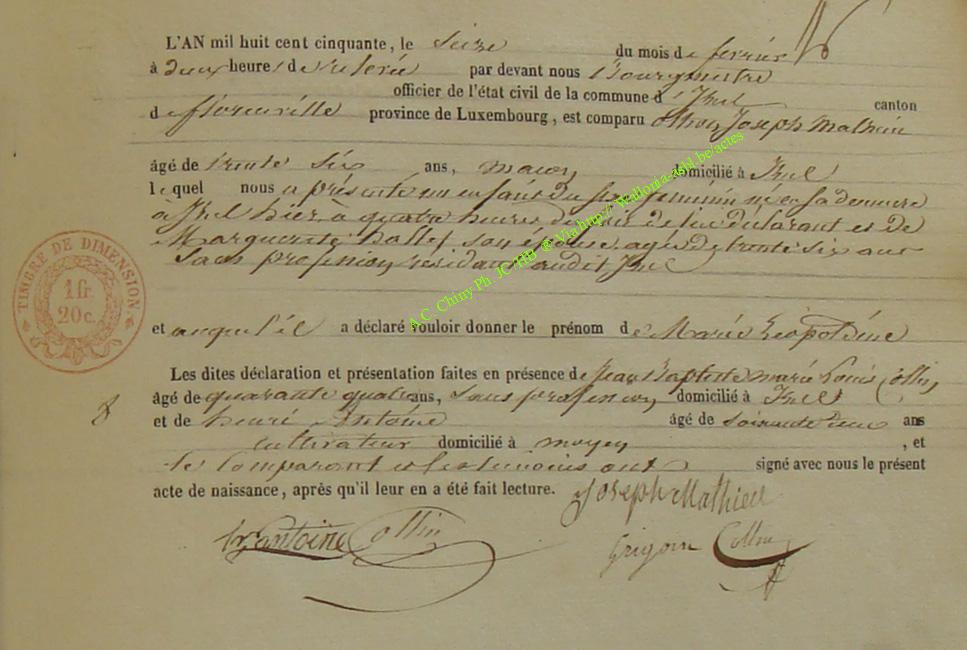 L'AN mil huit cent cinquante, le seize du mois de fevrier
à deux heures de relevée par devant nous Bourgmestre
officier de l'état civil de la commune d'Izel canton
de florenville province de Luxembourg, est comparu Joseph Mathieu
âgé de trente six ans, maçon domicilié à Izel
lequel nous a présenté un enfant du sexe feminin né en sa demeure
à Izel hier, à quatre heures du soir de lui déclarant et de
Marguerite hallet son épouse agée de trente six ans
Sans profession, résidant audit Izel
et auquel il a déclaré vouloir donner le prénom de Marie Leopoldine
Les dites déclaration et présentation faites en présence de Jean Baptiste marie Louis Collin
âgé de quarante quatre ans, sans profession domicilié à Izel
et de henri Antoine âgé de soixante deux ans
cultivateur domicilié à moyen , et
le Comparant et les temoins ont signé avec nous le présent
acte de naissance, après qu'il leur en a été fait lecture.
Joseph Mathieu
h. antoine Collin
Collin
TIMBRE DE DIMENSION.
1 fr.
20 c.
A.C. Chiny Ph. JC HB © Via http:// Wallonia-asbl.be/actes